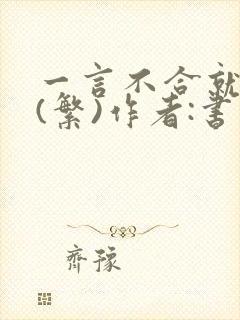 一言不合就
(繁)作者:書
齊豫